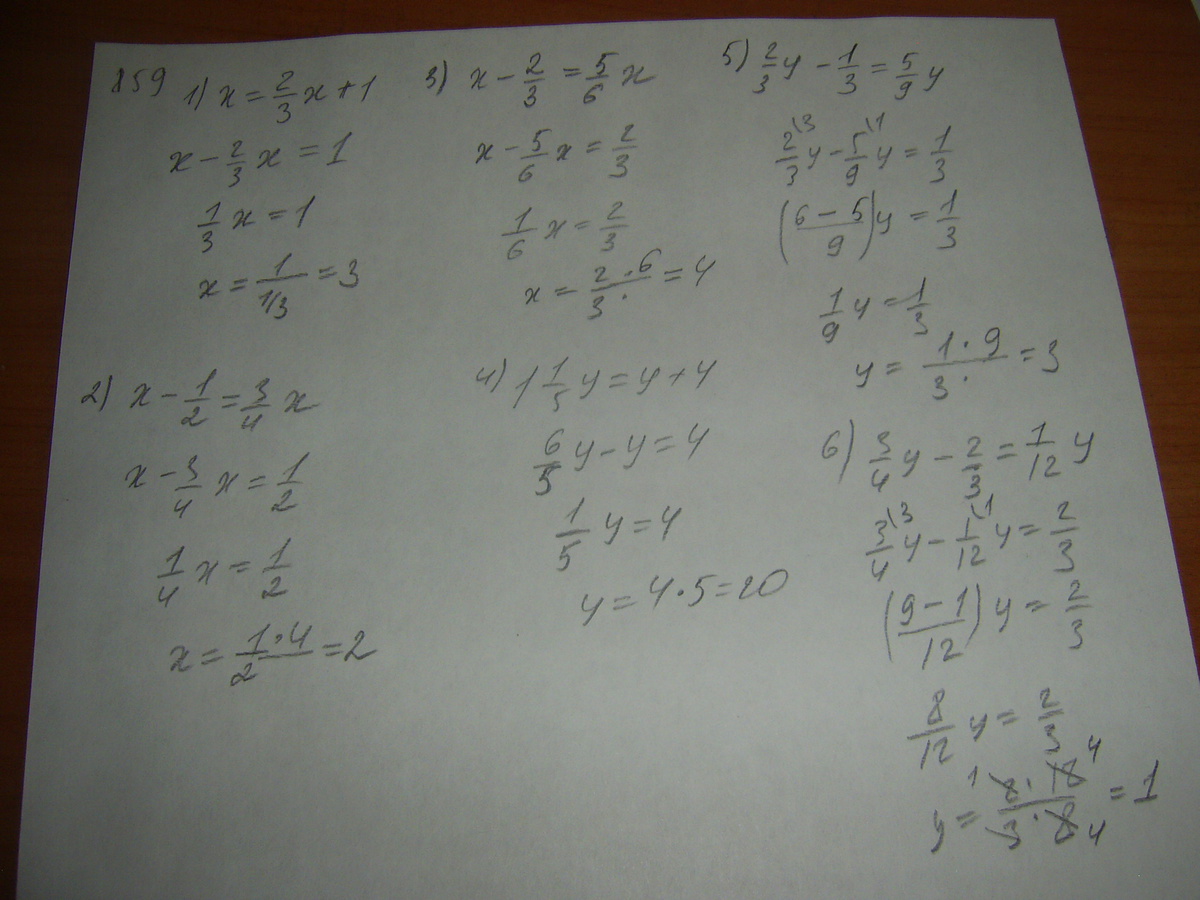 859 1) x = 2/3 x + 1
x - 2/3 x = 1
1/3 x = 1
x = 1/(1/3) = 3
2) x - 1/2 = 3/4 x
x - 3/4 x = 1/2
1/4 x = 1/2
x = (1·4)/2 = 2
3) x - 2/3 = 5/6 x
x - 5/6 x = 2/3
1/6 x = 2/3
x = (2·6)/(3·) = 4
4) 1 1/5 y = y + 4
6/5 y - y = 4
1/5 y = 4
y = 4·5 = 20
5) 2/3 y - 1/3 = 5/9 y
2/3 \3 y - 5/9 \1 y = 1/3
((6 - 5)/9) y = 1/3
1/9 y = 1/3
y = (1·9)/(3·) = 3
6) 3/4 y - 2/3 = 1/12 y
3/4 \3 y - 1/12 \1 y = 2/3
((9 - 1)/12) y = 2/3
8/12 y = 2/3
y = 1 4 / 3·8 4 = 1